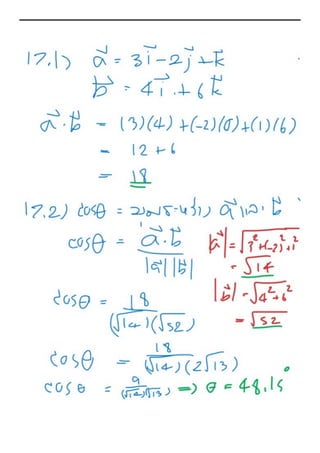 17.1) a⃗ = 3i⃗ -2j⃗ +k⃗
b⃗ = 4i⃗ + 6k⃗
a⃗·b⃗ = (3)(4) +(-2)(0)+(1)(6)
= 12 + 6
= 18
17.2) cosθ = มุมระหว่าง a⃗ และ b⃗
cosθ = a⃗·b⃗ / |a⃗||b⃗|
|a⃗| = √3²+(-2)²+1²
= √14
|b⃗| = √4²+6²
= √52
cosθ = 18 / (√14)(√52)
cosθ = 18 / (√14)(2√13)
cosθ = 9 / (√14)(√13) => θ = 48.15°